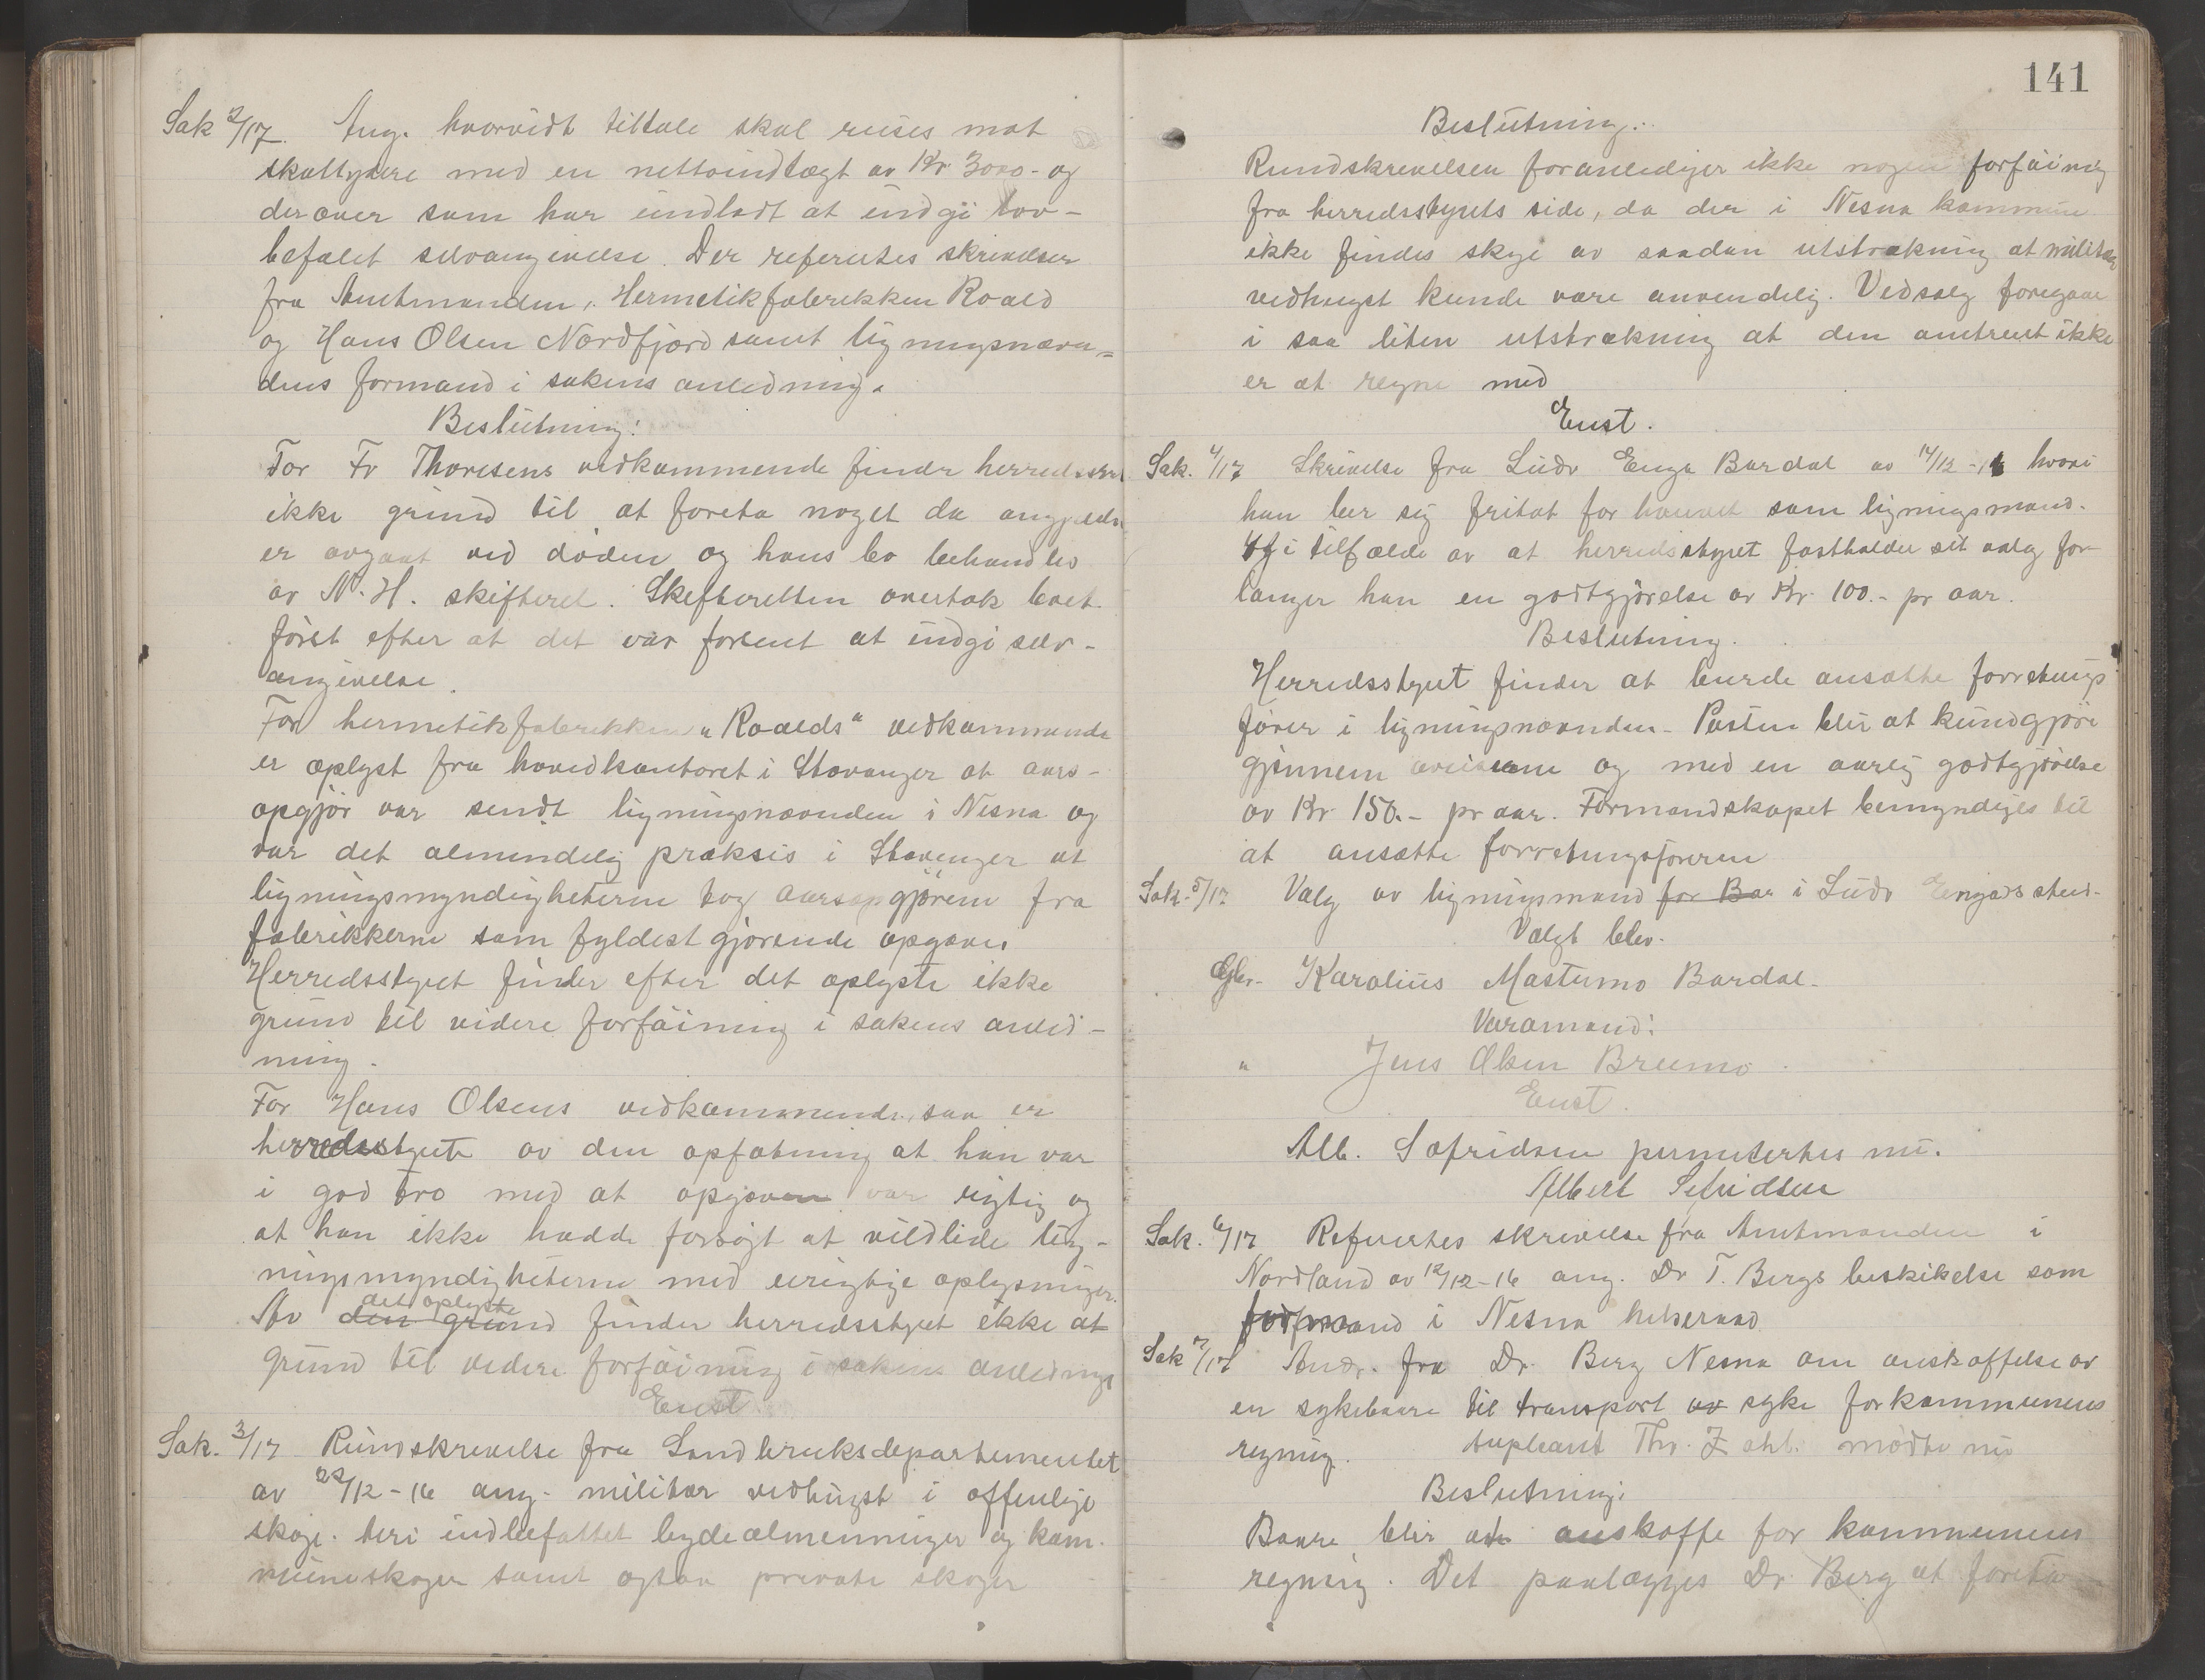 Sak 2/17. Ang. hvorvidt tiltale skal reises mot
skattydere med en nettoindtægt av Kr. 3000.- og
derover som har undladt at indgi lov-
befalet selvangivelse. Der refereres skrivelser
fra Amtmanden, Hermetikfabrikken Roald
og Hans Olsen Nordfjord samt ligningsnævn=
dens formand i sakens anledning.
Beslutning:
For Fr Thoresens vedkommende finder herredsstyr
ikke grund til at foreta noget da angjeldn
er avgaat ved døden og hans bo behandles
av N. H. skifteret. Skifteretten overtok boet
først efter at det var forsent at indgi selv-
angivelse.
For hermetikfabrikken "Roalds" vedkommende
er oplyst fra hovedkontoret i Stavanger at aars-
opgjør var sendt ligningsnævnden i Nesna og
var det almindelig praksis i Stavanger at
ligningsmyndigheterne tog aarsopgjørene fra
fabrikkerne som fyldestgjørende opgaver
Herredsstyret finder efter det oplyste ikke
grund til videre forføining i sakens anled-
ning.
For Hans Olsens vedkommende, saa er
herredsstyret av den opfatning at han var
i god tro med at opgaven var rigtig og
at han ikke hadde forsøgt at vildlede lig-
ningsmyndigheterne med urigtige oplysninger.
det oplyste
Av den grund finder herredsstyret ikke at
grund til videre forføining i sakens anledning
Enst.
Sak. 3/17 Rundskrivelse fra Landbruksdepartementet
av 22/12-16 ang. militær vedhugst i offenlige
skoge. heri indbefattet bygdealmenninger og kom-
muneskoger samt ogsaa private skoger
141
Beslutning:
Rundskrivelsen foranlediger ikke nogen forføining
fra herredsstyrets side, da der i Nesna kommune
ikke findes skoge av saadan utstrækning at militær
vedhugst kunde være anvendelig. Vedsalg foregaar
i saa liten utstrækning at den omtrent ikke
er at regne med
Enst.
Sak. 4/17 Skrivelse fra Ludv Enga Bardal av 14/12-16 hvori
han ber sig fritat for hvervet som ligningsmand.
Og i tilfælde av at herredsstyret fastholder sit valg for-
langer han en godtgjørelse av Kr. 100.- pr aar.
Beslutning.
Herredsstyret finder at burde ansætte forretnings
fører i ligningsnævnden. Posten blir at kundgjøre
gjennem aviserne og med en aarlig godtgjørelse
av Kr 150.- pr aar. Formandskapet bemyndiges til
at ansætte forretningsføreren
Sak. 5/17 Valg av ligningsmand for Bar i Ludv Engas sted-
Valgt blev.
Gbr. Karolius Mastumo Bardal.
Varamand:
" Jens Olsen Breimo.
Enst.
Alb. Sefridsen permitertes nu.
Albert Sefridsen
Sak. 6/17 Refertes skrivelse fra Amtmanden i
Nordland av 12/12-16 ang. Dr T. Bergs beskikelse som
formand i Nesna helseraad
Sak 7/17 Andr. fra Dr. Berg Nesna om anskaffelse av
en sykebaare til transport av syke for kommunens
regning. supleant Thv. Zahl. mødte nu
Beslutning:
Baare blir at anskaffe for kommunens
regning. Det paalægges Dr. Berg at foreta